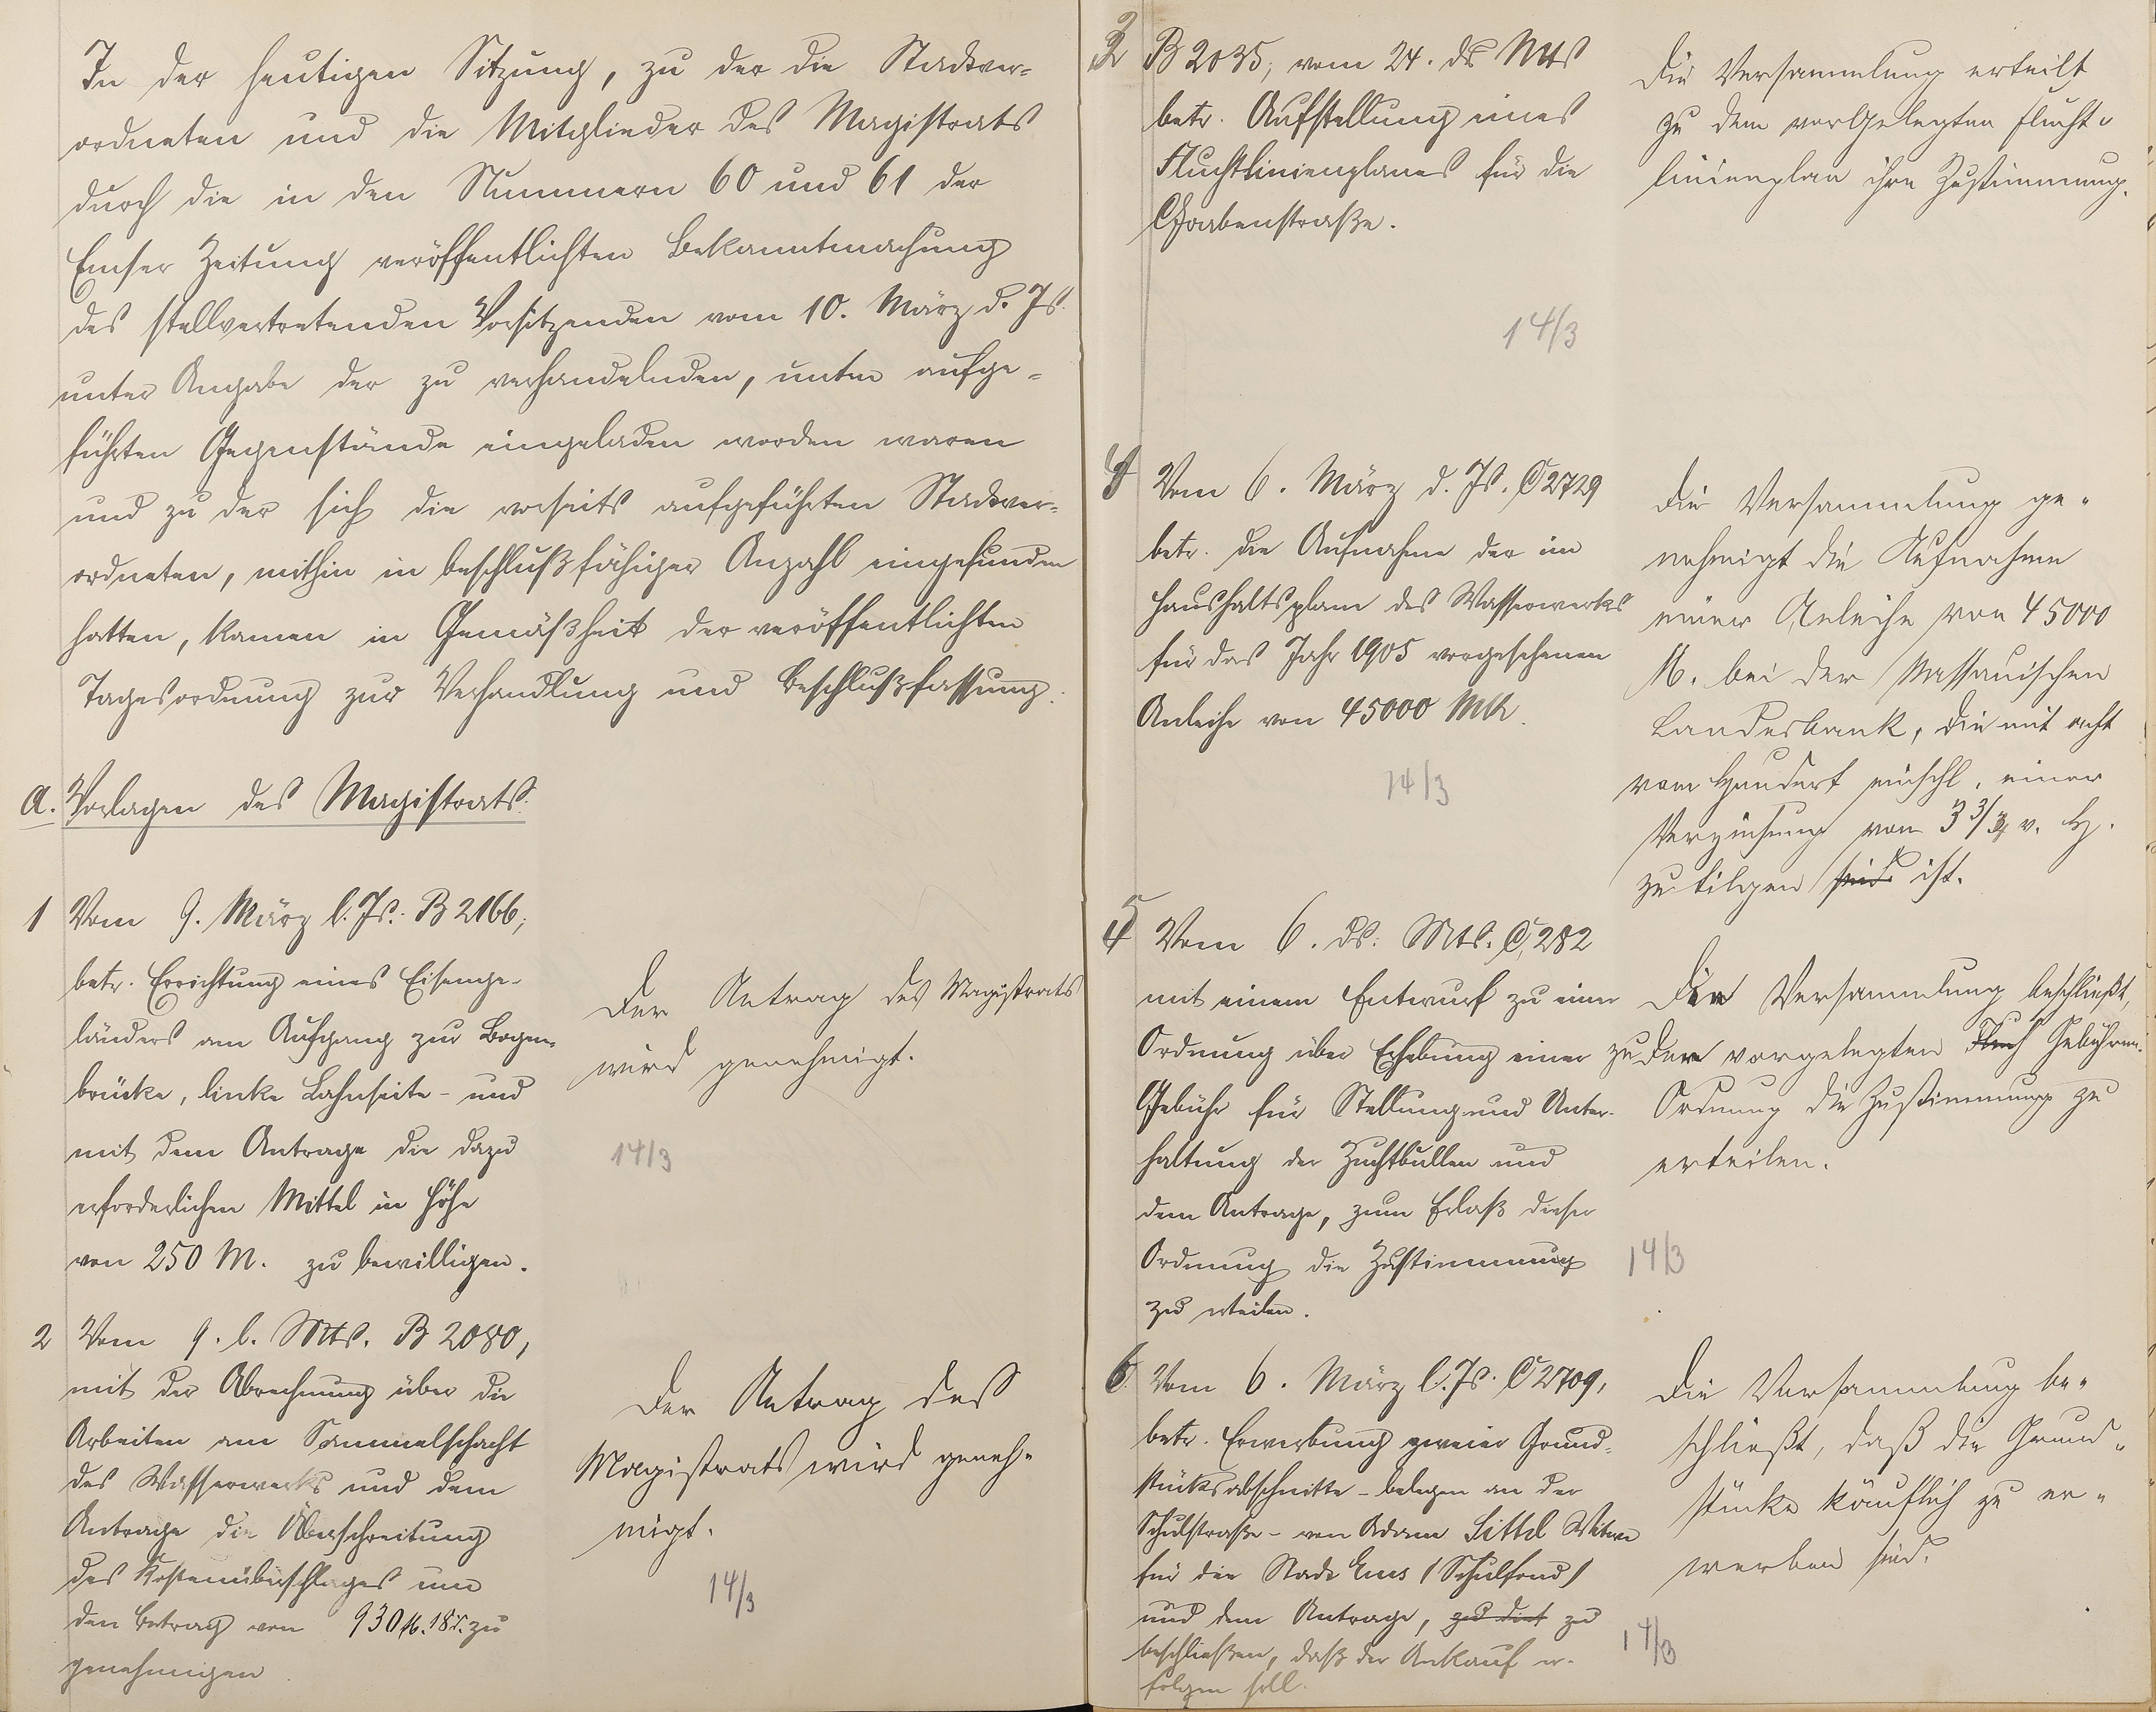 In der heutigen Sitzung, zu der die Stadtver-
ordneten und die Mitglieder des Magistrats
durch die in den Nummern 60 und 61 der
Emser Zeitung veröffentlichten Bekanntmachung
des stellvertretenden Vorsitzenden vom 10. März d. Js.
unter Angabe der zu verhandelnden, unten aufge-
führten Gegenstände eingeladen worden waren
und zu der sich die vorseits aufgeführten Stadtver-
ordneten, mithin in beschlußfähiger Anzahl eingefunden
hatten, kamen in Gemäßheit der veröffentlichten
Tagesordnung zur Verhandlung und Beschlußfassung:
A. Vorlagen des Magistrats.
1 Vom 9. März l. Js. B 2166,
betr. Errichtung eines Eisenge-
länders am Aufgang zur Bogen-
brücke, linke Lahnseite - und
mit dem Antrage die dazu
erforderlichen Mittel in Höhe
von 250 M. zu bewilligen.
Der Antrag des Magistrats
wird genehmigt.
14/3
2 Vom 9. l. Mts. B 2080,
mit der Abrechnung über die
Arbeiten am Sammelschacht
des Wasserwerks und dem
Antrage die Überschreitung
des Kostenüberschlages um
den Betrag von 930 M. 18 zu
genehmigen
Der Antrag des
Magistrats wird geneh-
migt.
14/3
3 B 2035, vom 24. ds Mts
betr. Aufstellung eines
Fluchtlinienplanes für die
Grabenstraße.
Die Versammlung erteilt
zu dem vorgelegten Flucht-
linienplan ihre Zustimmung.
14/3
4 Vom 6. März d. Js. C 2729
betr. die Aufnahme der im
Haushaltsplane des Wasserwerks
für das Jahr 1905 vorgesehenen
Anleihe von 45000 Mk.
14/3
Die Versammlung ge-
nehmigt die Aufnahme
einer Anleihe von 45000
M. bei der Nassauischen
Landesbank, die mit acht
vom Hundert einschl. einer
Verzinsung von 3 3/4 v. H.
zu tilgen sind ist.
5 Vom 6. ds. Mts. C 282
mit einem Entwurf zu einer
Ordnung über Erhebung einer
Gebühr für Stellung und Unter-
haltung der Zuchtbullen und
dem Antrage, zum Erlaß dieser
Ordnung die Zustimmung
zu erteilen.
Die Versammlung beschließt,
zu der vorgelegten Gebühren-
Ordnung die Zustimmung zu
erteilen.
14/3
6 Vom 6. März l. Js. C 2709,
betr. Erwerbung zweier Grund-
stücksabschnitte - belegen an der
Schulstraße - von Adam Sittel Witwe
für die Stadt Ems (Schulfond)
und dem Antrage, zu zu
beschließen, daß der Ankauf er-
folgen soll.
Die Versammlung be-
schließt, daß die Grund-
stücke käuflich zu er-
werben sind.
14/3